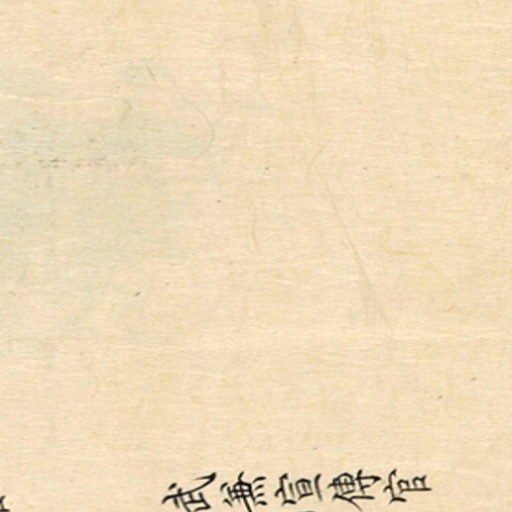 武兼宣傳官